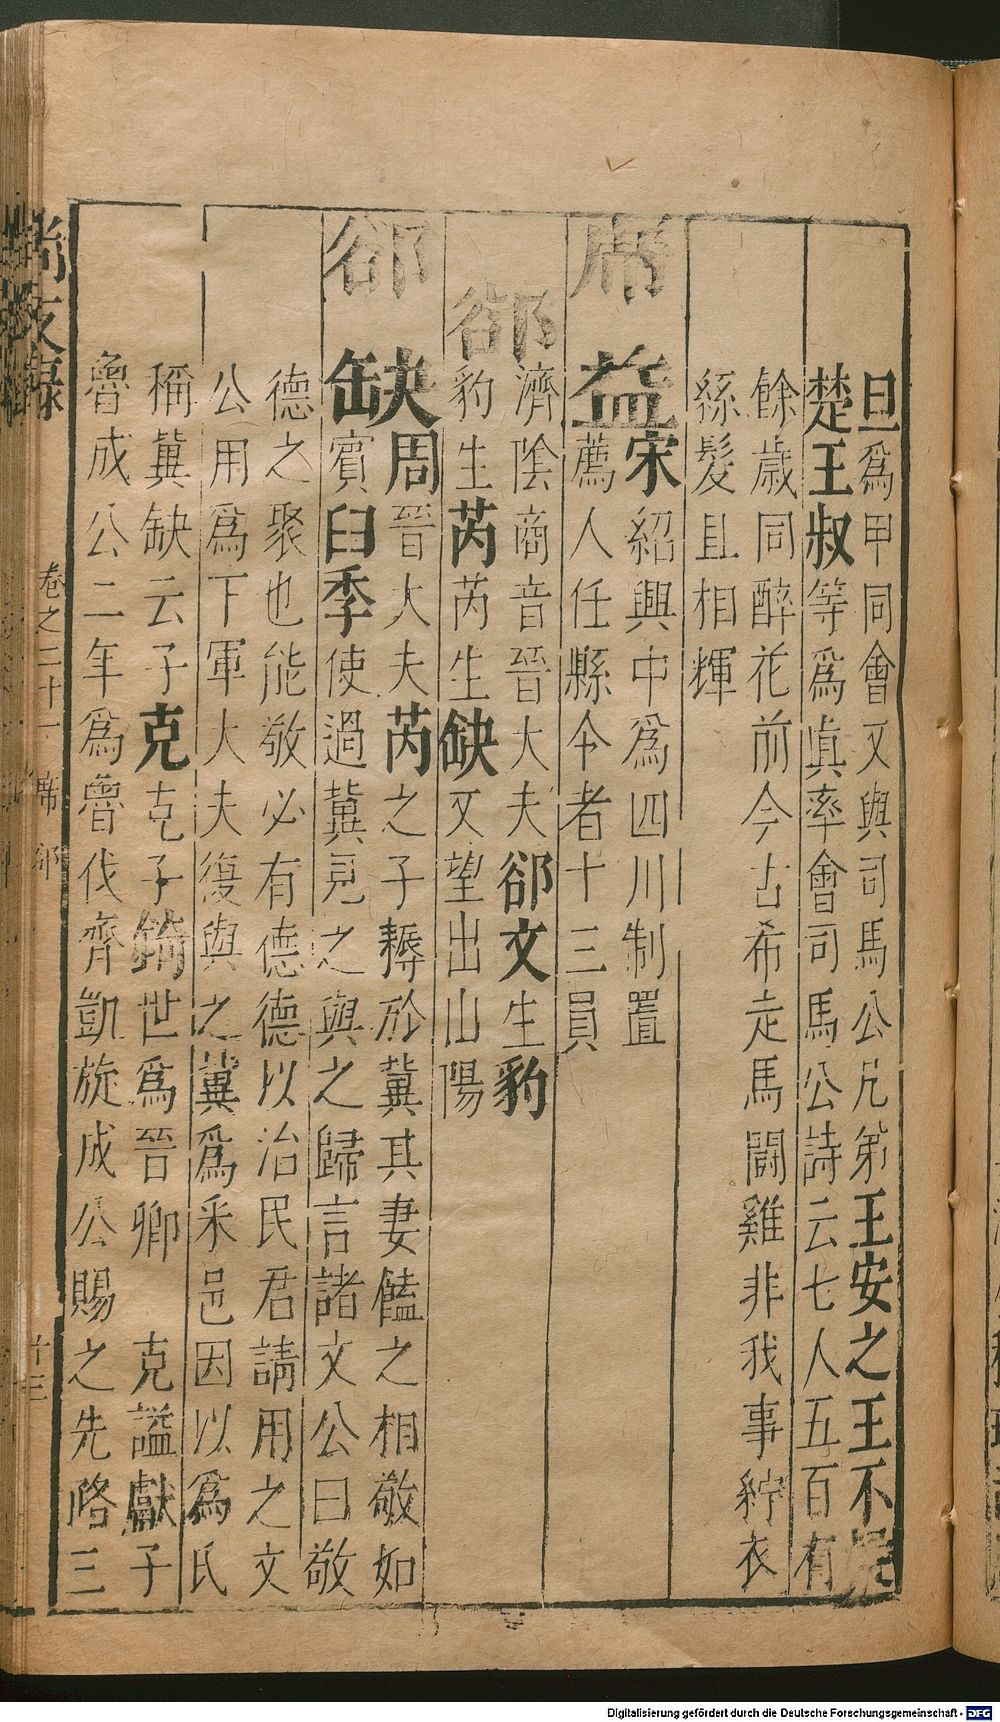 旦爲甲同會又與司馬公兄弟王安之王不
楚王叔等爲真率會司馬公詩云七人五百有
餘歲同醉花前今古希走馬鬪雞非我事紵衣
絲髮且相輝
席益宋紹興中爲四川制置
薦人任縣令者十三員
郤濟陰商音晉大夫郤文生豹
豹生芮芮生缺又望出山陽
郤缺周晉大夫芮之子耨於冀其妻饁之相敬如
賓臼季使過冀見之與之歸言諸文公曰敬
德之聚也能敬必有德德以治民君請用之文
公用爲下軍大夫復與之冀爲采邑因以爲氏
稱冀缺云子克克子錡世爲晉卿 克謚獻子
魯成公二年爲魯伐齊凱旋成公賜之先路三
尚友錄 卷之二十一 席 郤 十三
Digitalisierung gefördert durch die Deutsche Forschungsgemeinschaft - DFG